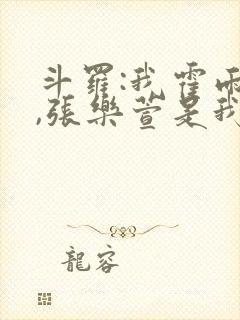 斗羅:我霍雨
,張樂萱是我
龍容